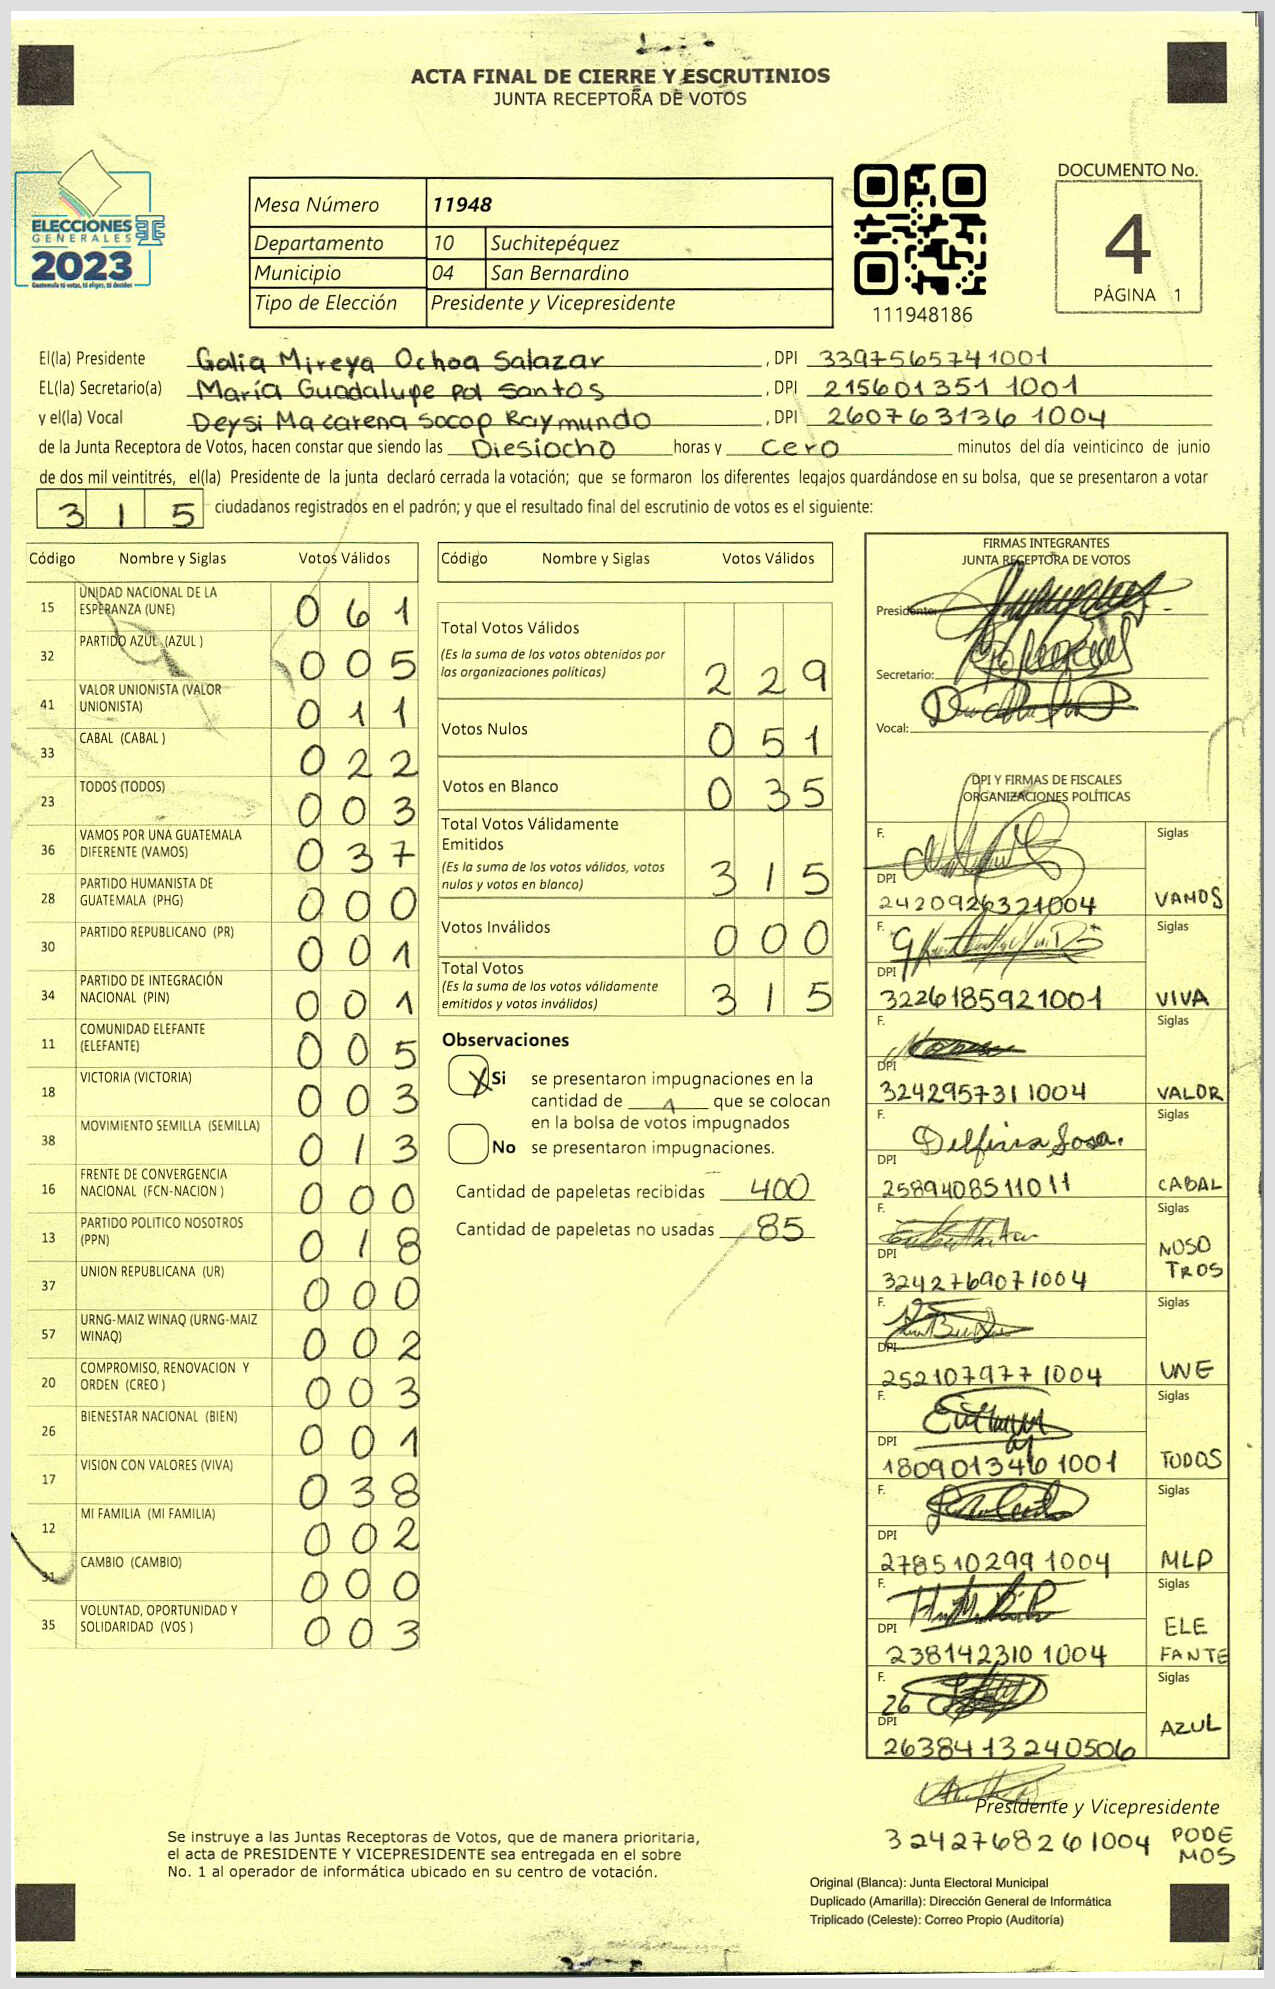 ACTA FINAL DE CIERRE Y ESCRUTINIOS
JUNTA RECEPTORA DE VOTOS
ELECCIONES
GENERALES
2023
Guatemala tú votas, tú eliges, tú decides
Mesa Número 11948
Departamento 10 Suchitepéquez
Municipio 04 San Bernardino
Tipo de Elección Presidente y Vicepresidente
111948186
DOCUMENTO No.
4
PÁGINA 1
El(la) Presidente Galia Mireya Ochoa Salazar, DPI 3397565741001
EL(la) Secretario(a) María Guadalupe Pol Santos, DPI 215601351 1001
y el(la) Vocal Deysi Macarena Socop Raymundo, DPI 260763136 1004
de la Junta Receptora de Votos, hacen constar que siendo las Diesiocho horas y cero minutos del día veinticinco de junio
de dos mil veintitrés, el(la) Presidente de la junta declaró cerrada la votación; que se formaron los diferentes legajos guardándose en su bolsa, que se presentaron a votar
315 ciudadanos registrados en el padrón; y que el resultado final del escrutinio de votos es el siguiente:
Código Nombre y Siglas Votos Válidos
15 UNIDAD NACIONAL DE LA ESPERANZA (UNE) 061
32 PARTIDO AZUL (AZUL ) 005
41 VALOR UNIONISTA (VALOR UNIONISTA) 011
33 CABAL (CABAL ) 022
23 TODOS (TODOS) 003
36 VAMOS POR UNA GUATEMALA DIFERENTE (VAMOS) 037
28 PARTIDO HUMANISTA DE GUATEMALA (PHG) 000
30 PARTIDO REPUBLICANO (PR) 001
34 PARTIDO DE INTEGRACIÓN NACIONAL (PIN) 001
11 COMUNIDAD ELEFANTE (ELEFANTE) 005
18 VICTORIA (VICTORIA) 003
38 MOVIMIENTO SEMILLA (SEMILLA) 013
16 FRENTE DE CONVERGENCIA NACIONAL (FCN-NACION ) 000
13 PARTIDO POLITICO NOSOTROS (PPN) 018
37 UNION REPUBLICANA (UR) 000
57 URNG-MAIZ WINAQ (URNG-MAIZ WINAQ) 002
20 COMPROMISO, RENOVACION Y ORDEN (CREO ) 003
26 BIENESTAR NACIONAL (BIEN) 001
17 VISION CON VALORES (VIVA) 038
12 MI FAMILIA (MI FAMILIA) 002
31 CAMBIO (CAMBIO) 000
35 VOLUNTAD, OPORTUNIDAD Y SOLIDARIDAD (VOS ) 003
Código Nombre y Siglas Votos Válidos
Total Votos Válidos
(Es la suma de los votos obtenidos por
las organizaciones políticas) 229
Votos Nulos 051
Votos en Blanco 035
Total Votos Válidamente
Emitidos
(Es la suma de los votos válidos, votos
nulos y votos en blanco) 315
Votos Inválidos 000
Total Votos
(Es la suma de los votos válidamente
emitidos y votos inválidos) 315
Observaciones
X Si se presentaron impugnaciones en la
cantidad de 1 que se colocan
en la bolsa de votos impugnados
No se presentaron impugnaciones.
Cantidad de papeletas recibidas 400
Cantidad de papeletas no usadas 85
FIRMAS INTEGRANTES
JUNTA RECEPTORA DE VOTOS
Presidente:
Secretario:
Vocal:
DPI Y FIRMAS DE FISCALES
ORGANIZACIONES POLÍTICAS
F. Siglas
DPI
2420926321004 VAMOS
F. Siglas
DPI
3226185921001 VIVA
F. Siglas
DPI
324295731 1004 VALOR
F. Delfina Sosa. Siglas
DPI
2589408511011 CABAL
F. Siglas
DPI
3242769071004 NOSO
TROS
F. Siglas
DPI
252107977 1004 UNE
F. Siglas
DPI
180901346 1001 TODOS
F. Siglas
DPI
278510299 1004 MLP
F. Siglas
DPI
238142310 1004 ELE
FANTE
F. Siglas
26
DPI
2638413240506 AZUL
Presidente y Vicepresidente
3242768261004 PODE
MOS
Se instruye a las Juntas Receptoras de Votos, que de manera prioritaria,
el acta de PRESIDENTE Y VICEPRESIDENTE sea entregada en el sobre
No. 1 al operador de informática ubicado en su centro de votación.
Original (Blanca): Junta Electoral Municipal
Duplicado (Amarilla): Dirección General de Informática
Triplicado (Celeste): Correo Propio (Auditoría)